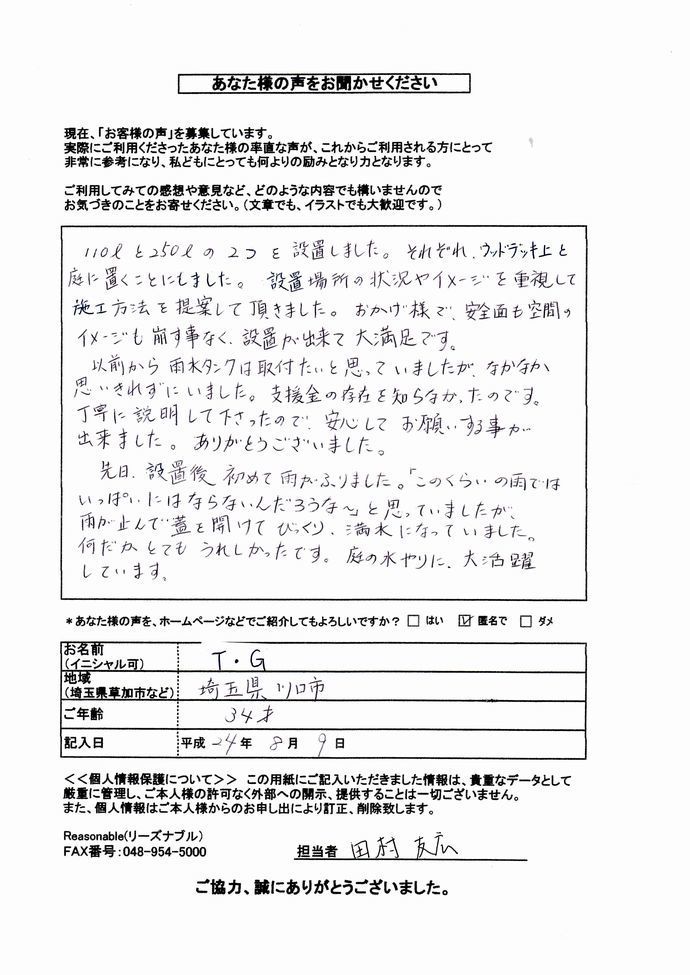 あなた様の声をお聞かせください
現在、「お客様の声」を募集しています。
実際にご利用くださったあなた様の率直な声が、これからご利用される方にとって
非常に参考になり、私どもにとっても何よりの励みとなり力となります。
ご利用してみての感想や意見など、どのような内容でも構いませんので
お気づきのことをお寄せください。(文章でも、イラストでも大歓迎です。)
110ℓと250ℓの2つを設置しました。それぞれ、ウッドデッキ上と
庭に置くことにもました。設置場所の状況やイメージを重視して
施工方法を提案して頂きました。おかげ様で、安全面も空間の
イメージも崩す事なく、設置が出来て大満足です。
以前から雨水タンクは取付たいと思っていましたが、なかなか
思いきれずにいました。支援金の存在を知らなかったのです。
丁寧に説明して下さったので、安心してお願いする事が
出来ました。ありがとうございました。
先日、設置後初めて雨がふりました。「このくらいの雨では
いっぱいにはならないんだろうな〜」と思っていましたが、
雨が止んで蓋を開けてびっくり、満水になっていました。
何だかとてもうれしかったです。庭の水やりに、大活躍
しています。
*あなた様の声を、ホームページなどでご紹介してもよろしいですか? □ はい ☑ 匿名で □ ダメ
お名前
(イニシャル可) T・G
地域
(埼玉県草加市など) 埼玉県川口市
ご年齢 34才
記入日 平成 24 年 8 月 9 日
<<個人情報保護について>> この用紙にご記入いただきました情報は、貴重なデータとして
厳重に管理し、ご本人様の許可なく外部への開示、提供することは一切ございません。
また、個人情報はご本人様からのお申し出により訂正、削除致します。
Reasonable(リーズナブル)
FAX番号:048-954-5000 担当者 田村 友広
ご協力、誠にありがとうございました。